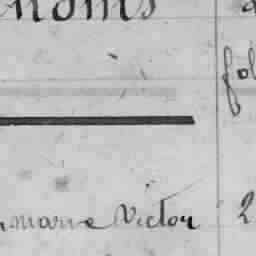 noms
fol
marie Victor 2